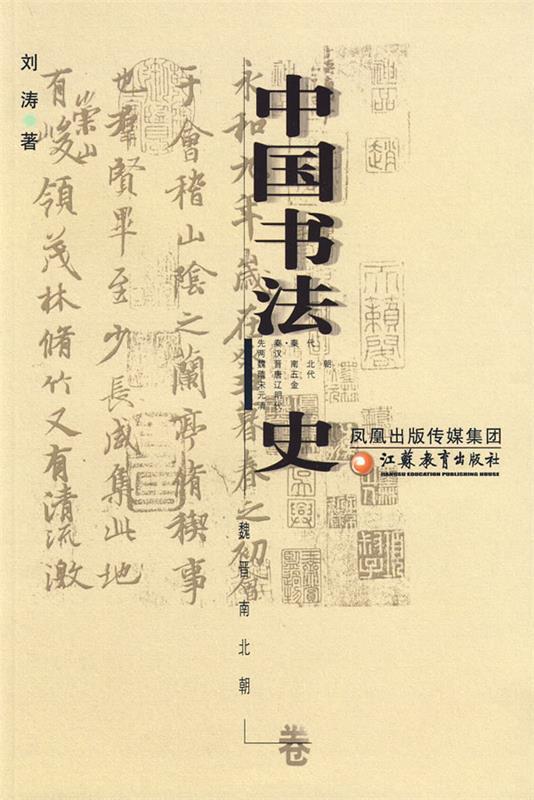 刘涛著
中国书法史
先秦·秦代
两汉
魏晋南北朝
隋唐五代
宋辽金
元明
清代
凤凰出版传媒集团
江苏教育出版社
JIANGSU EDUCATION PUBLISHING HOUSE
魏晋南北朝
卷
永和九年歲在癸丑暮春之初會
于會稽山陰之蘭亭脩稧事
也羣賢畢至少長咸集此地
有崇山峻領茂林脩竹又有清流激
大賴閣